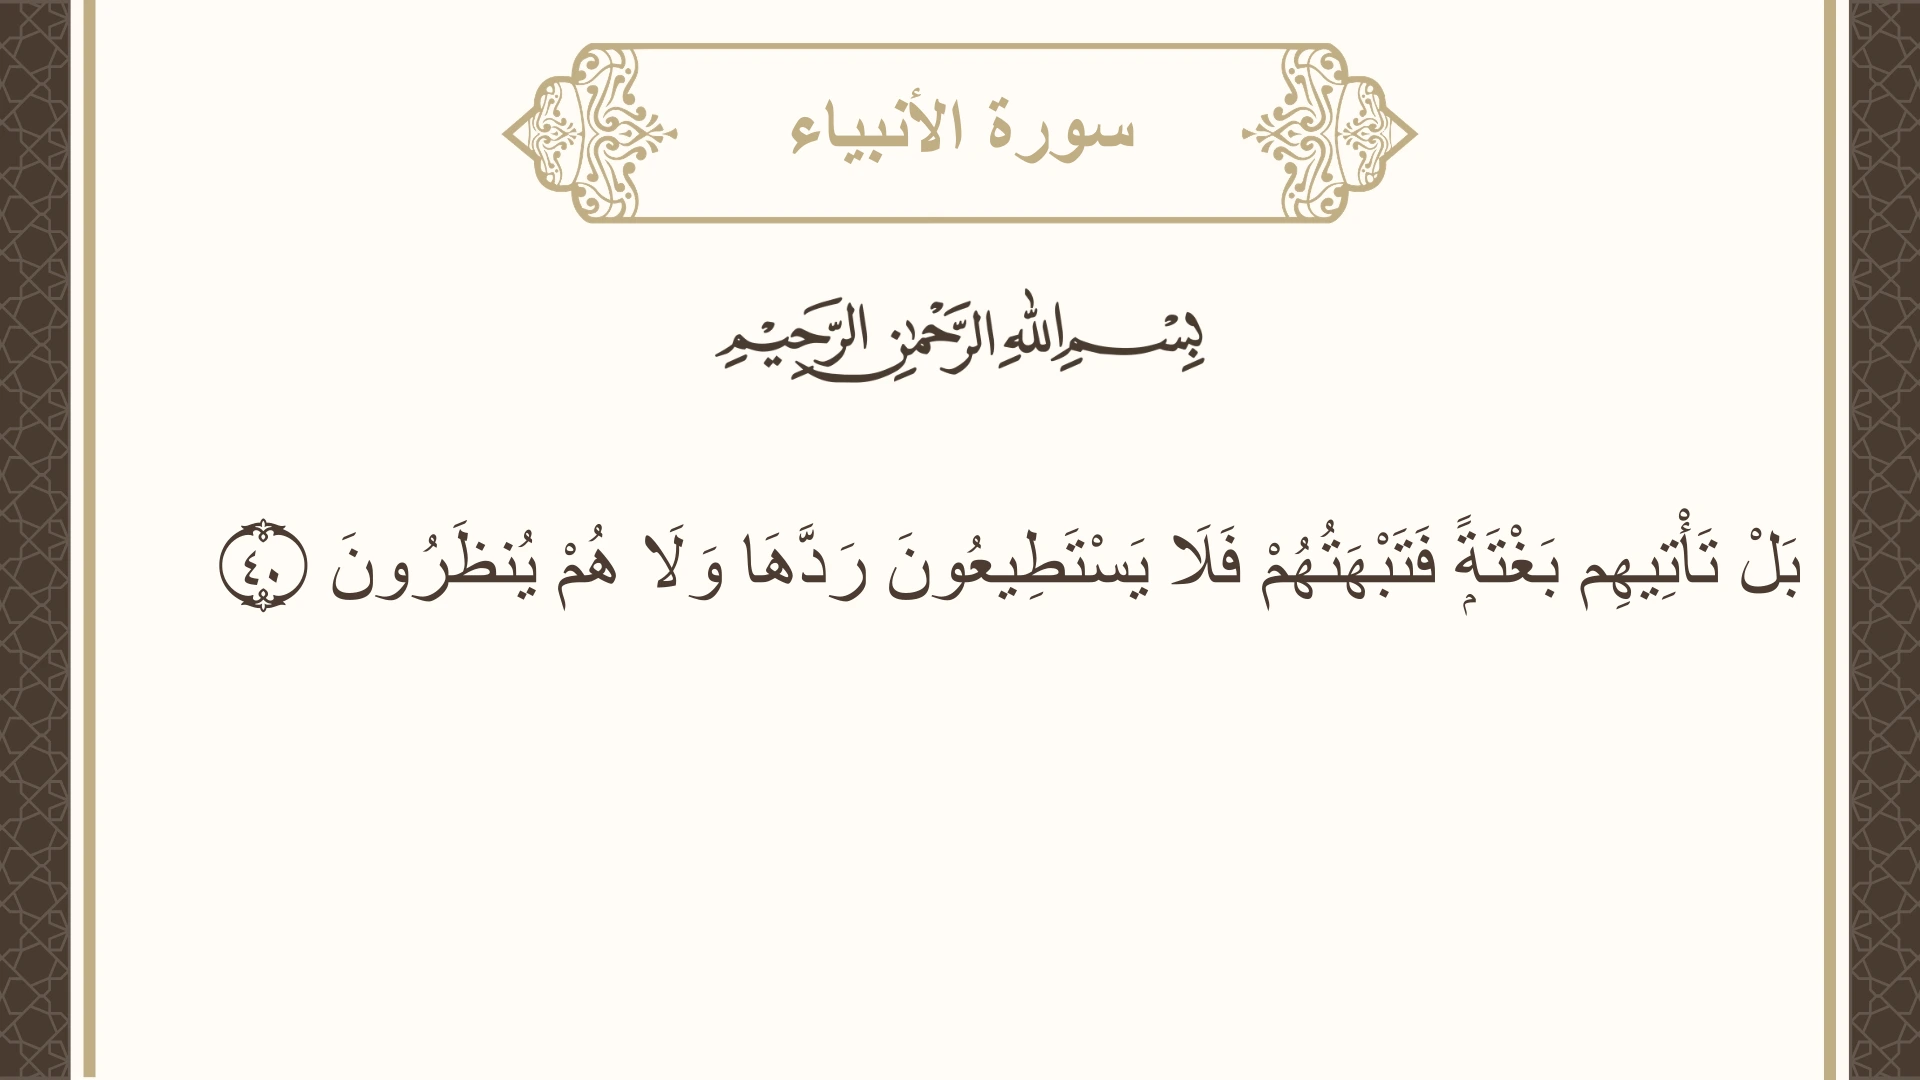 سورة الأنبياء
بِسْمِ اللهِ الرَّحْمٰنِ الرَّحِيْمِ
بَلْ تَأْتِيهِم بَغْتَةًۭ فَتَبْهَتُهُمْ فَلَا يَسْتَطِيعُونَ رَدَّهَا وَلَا هُمْ يُنظَرُونَ ٤٠